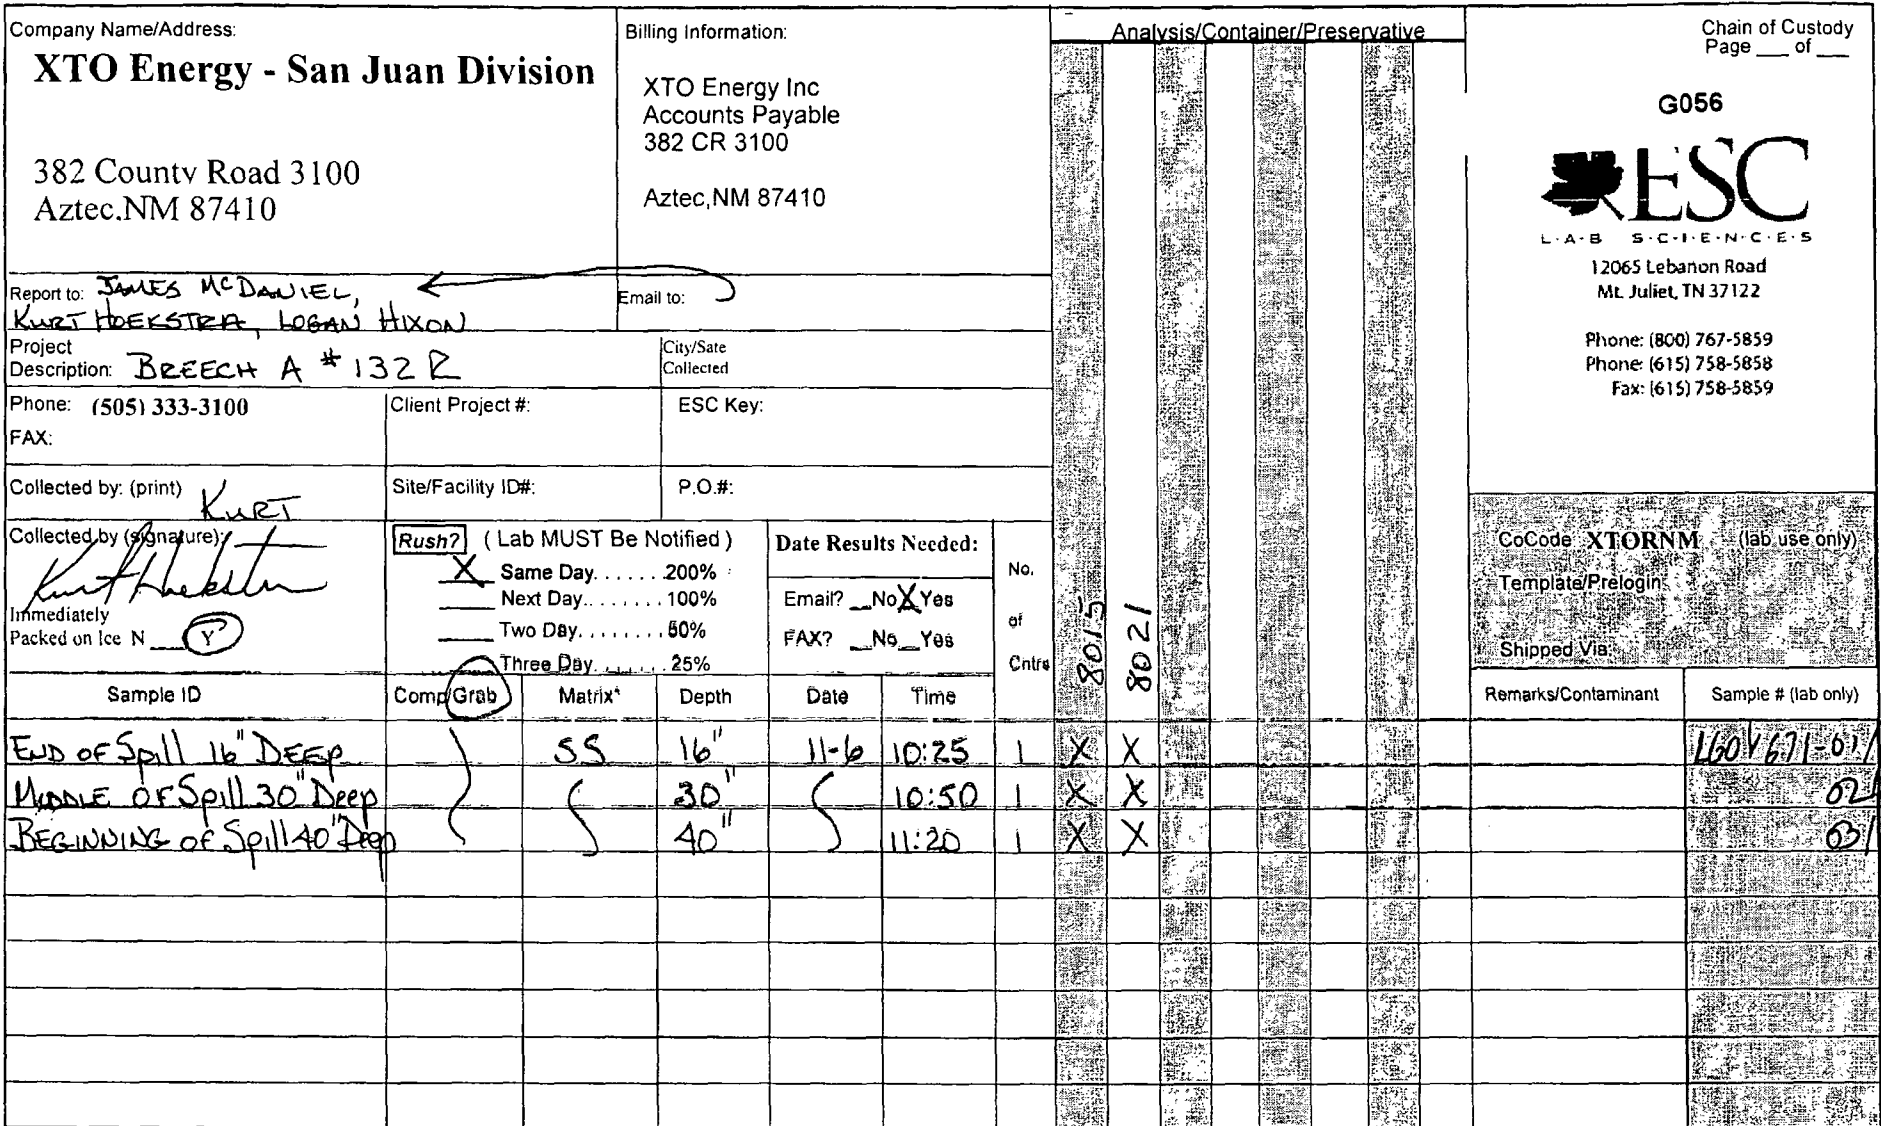 Company Name/Address:
XTO Energy - San Juan Division
382 County Road 3100
Aztec.NM 87410
Billing Information:
XTO Energy Inc
Accounts Payable
382 CR 3100
Aztec,NM 87410
Analysis/Container/Preservative
Chain of Custody
Page ___ of ___
G056
ESC
L·A·B S·C·I·E·N·C·E·S
12065 Lebanon Road
Mt. Juliet, TN 37122
Phone: (800) 767-5859
Phone: (615) 758-5858
Fax: (615) 758-5859
Report to: JAMES McDANIEL,
KURT HOEKSTRA, LOGAN HIXON
Email to:
Project
Description: BREECH A #132 R
City/Sate
Collected
Phone: (505) 333-3100
FAX:
Client Project #:
ESC Key:
Collected by: (print) KURT
Site/Facility ID#:
P.O.#:
Collected by (signature):
Kurt Hoekstra
Immediately
Packed on Ice N ___ Y
Rush? ( Lab MUST Be Notified )
X Same Day. . . . . . .200%
___ Next Day. . . . . . . .100%
___ Two Day. . . . . . . . .50%
___ Three Day. . . . . . . .25%
Date Results Needed:
Email? __No X Yes
FAX? __No__Yes
No.
of
Cntrs
8015
8021
CoCode XTORNM (lab use only)
Template/Prelogin:
Shipped Via:
Sample ID Comp/Grab Matrix* Depth Date Time Remarks/Contaminant Sample # (lab only)
END OF Spill 16" DEEP SS 16" 11-6 10:25 1 X X L604671-01
MIDDLE OF Spill 30" Deep 30" 10:50 1 X X 02
BEGINNING OF Spill 40" Deep 40" 11:20 1 X X 03